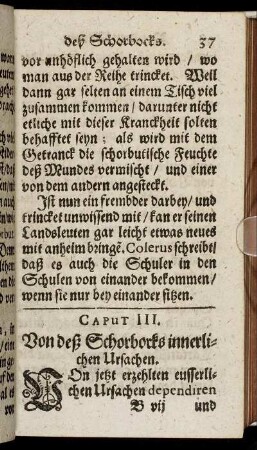 deß Schorbocks. 37
vor unhöflich gehalten wird / wo
man aus der Reihe trincket. Weil
dann gar selten an einem Tisch viel
zusammen kommen / darunter nicht
etliche mit dieser Kranckheit solten
behafftet seyn; als wird mit dem
Getranck die schorbutische Feuchte
deß Mundes vermischt / und einer
von dem andern angesteckt.
Ist nun ein frembder darbey / und
trincket unwissend mit / kan er seinen
Landsleuten gar leicht etwas neues
mit anheim bringē. Colerus schreibt /
daß es auch die Schuler in den
Schulen von einander bekommen /
wenn sie nur bey einander sitzen.
CAPUT III.
Von deß Schorbocks innerli-
chen Ursachen.
VOn jetzt erzehlten eusserli-
chen Ursachen dependiren
B vij und